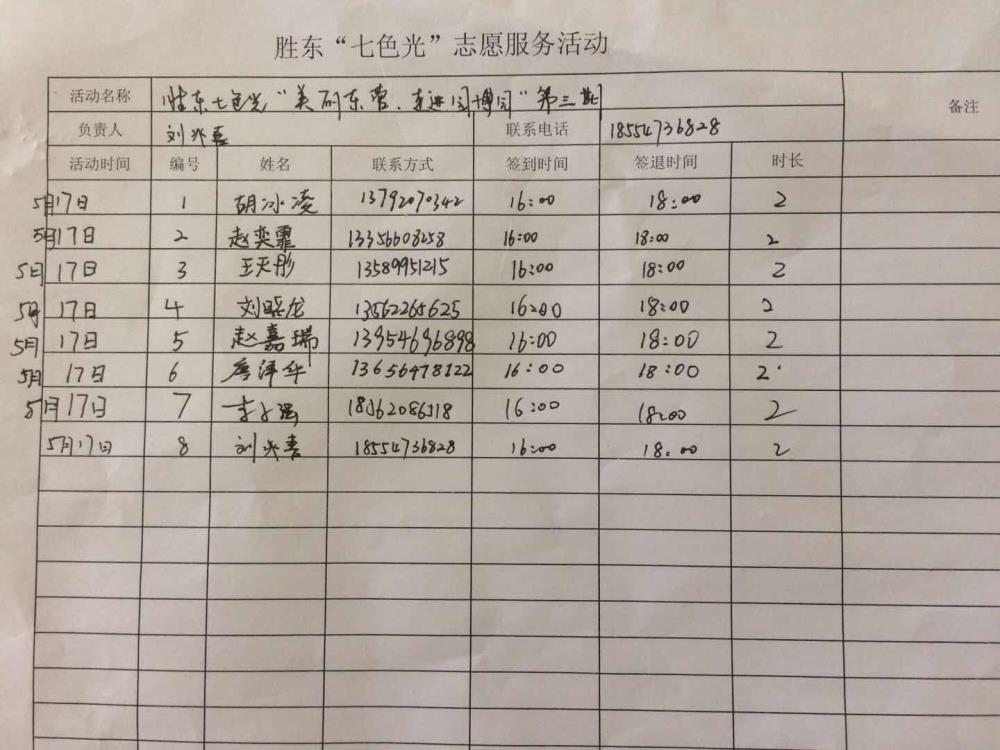 胜东“七色光”志愿服务活动
活动名称 胜东七色光“美丽东营.走进园博园”第三期 备注
负责人 刘兴喜 联系电话 18554736828
活动时间 编号 姓名 联系方式 签到时间 签退时间 时长
5月17日 1 胡冰凌 13792070342 16:00 18:00 2
5月17日 2 赵奕霏 13356608258 16:00 18:00 2
5日 17日 3 王天彤 13589951215 16:00 18:00 2
5月 17日 4 刘晓龙 13562265625 16:00 18:00 2
5月 17日 5 赵嘉瑞 13954696898 16:00 18:00 2
5月 17日 6 13656478122 16:00 18:00 2
5月17日 7 16:00 18:00 2
5月17日 8 刘兴喜 18554736828 16:00 18.00 2